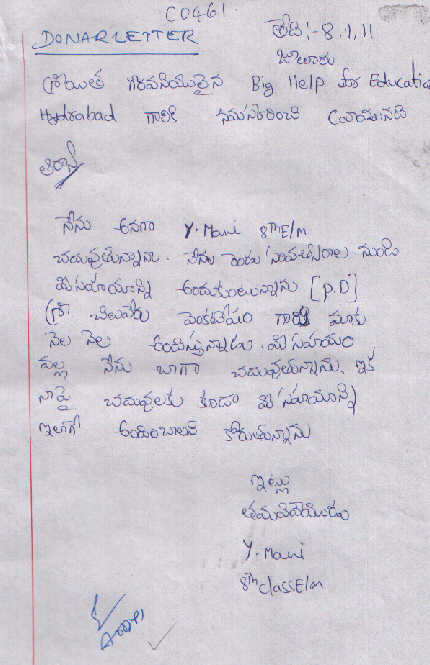 C0461
DONAR LETTER
తేది:- 8.1.11
ఏలూరు
శ్రీయుత గౌరవనీయులైన Big Help for Education
Hydrabad గారికి నమస్కరించి వ్రాయునది
నేను అనగా Y. Mani 8th E/m
చదువుతున్నాను. నేను రెండు సంవత్సరాల నుండి
మీ సహాయాన్ని అందుకుంటున్నాను [P.D]
శ్రీ. చలువాది వెంకటేషం గారు మాకు
నెల నెల అందిస్తున్నారు. మీ సహాయం
వల్ల నేను బాగా చదువుతున్నాను. ఇక
పై చదువులకు కూడా మీ సహాయాన్ని
ఇలాగే అందించాలని కోరుతున్నాను
ఇట్లు
తమ విదేయుడు
Y. Mani
8th class E/m